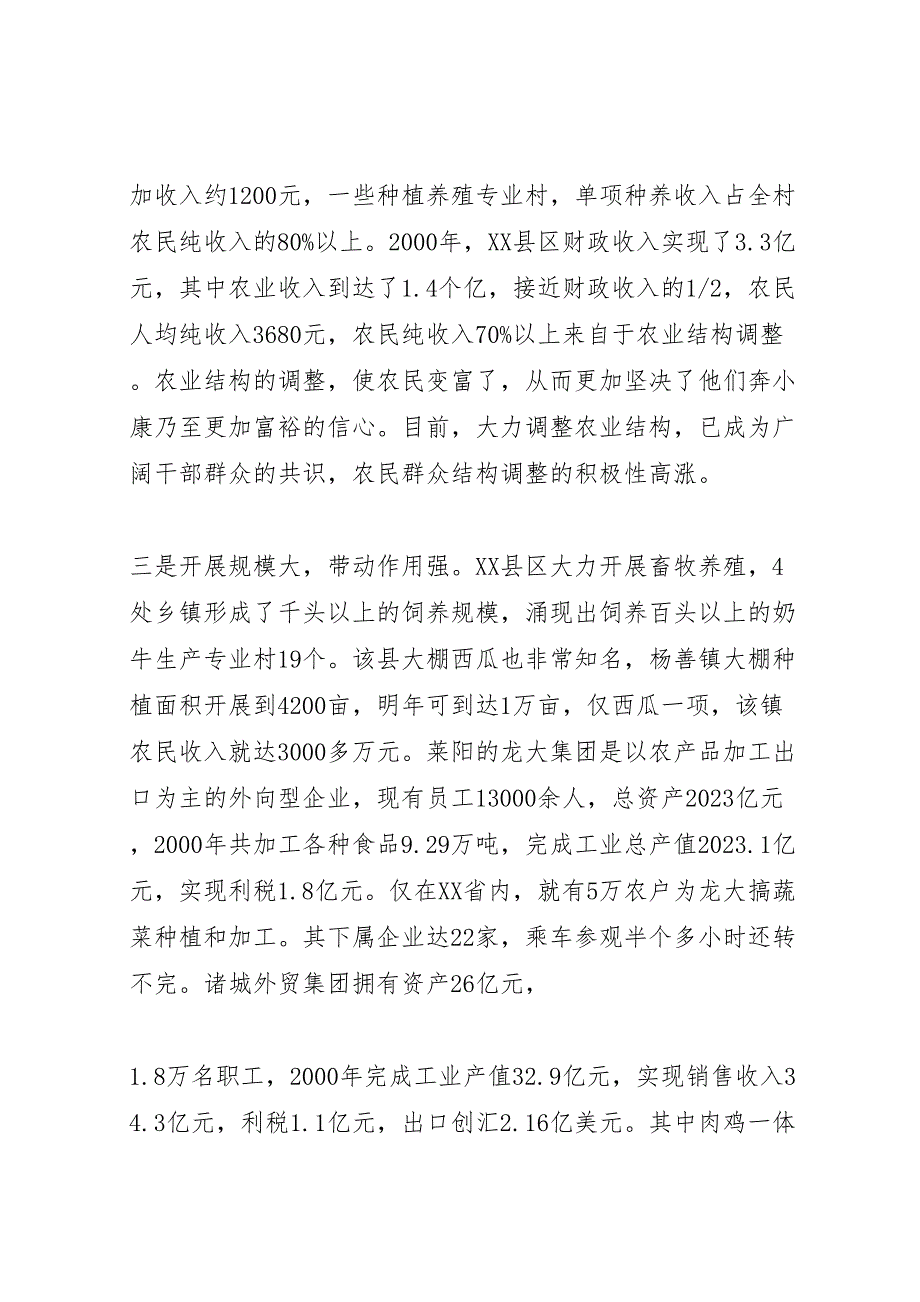 加收入约1200元，一些种植养殖专业村，单项种养收入占全村
农民纯收入的80%以上。2000年，XX县区财政收入实现了3.3亿
元，其中农业收入到达了1.4个亿，接近财政收入的1/2，农民
人均纯收入3680元，农民纯收入70%以上来自于农业结构调整
。农业结构的调整，使农民变富了，从而更加坚决了他们奔小
康乃至更加富裕的信心。目前，大力调整农业结构，已成为广
阔干部群众的共识，农民群众结构调整的积极性高涨。
三是开展规模大，带动作用强。XX县区大力开展畜牧养殖，4
处乡镇形成了千头以上的饲养规模，涌现出饲养百头以上的奶
牛生产专业村19个。该县大棚西瓜也非常知名，杨善镇大棚种
植面积开展到4200亩，明年可到达1万亩，仅西瓜一项，该镇
农民收入就达3000多万元。莱阳的龙大集团是以农产品加工出
口为主的外向型企业，现有员工13000余人，总资产2023亿元
，2000年共加工各种食品9.29万吨，完成工业总产值2023.1亿
元，实现利税1.8亿元。仅在XX省内，就有5万农户为龙大搞蔬
菜种植和加工。其下属企业达22家，乘车参观半个多小时还转
不完。诸城外贸集团拥有资产26亿元，
1.8万名职工，2000年完成工业产值32.9亿元，实现销售收入3
4.3亿元，利税1.1亿元，出口创汇2.16亿美元。其中肉鸡一体